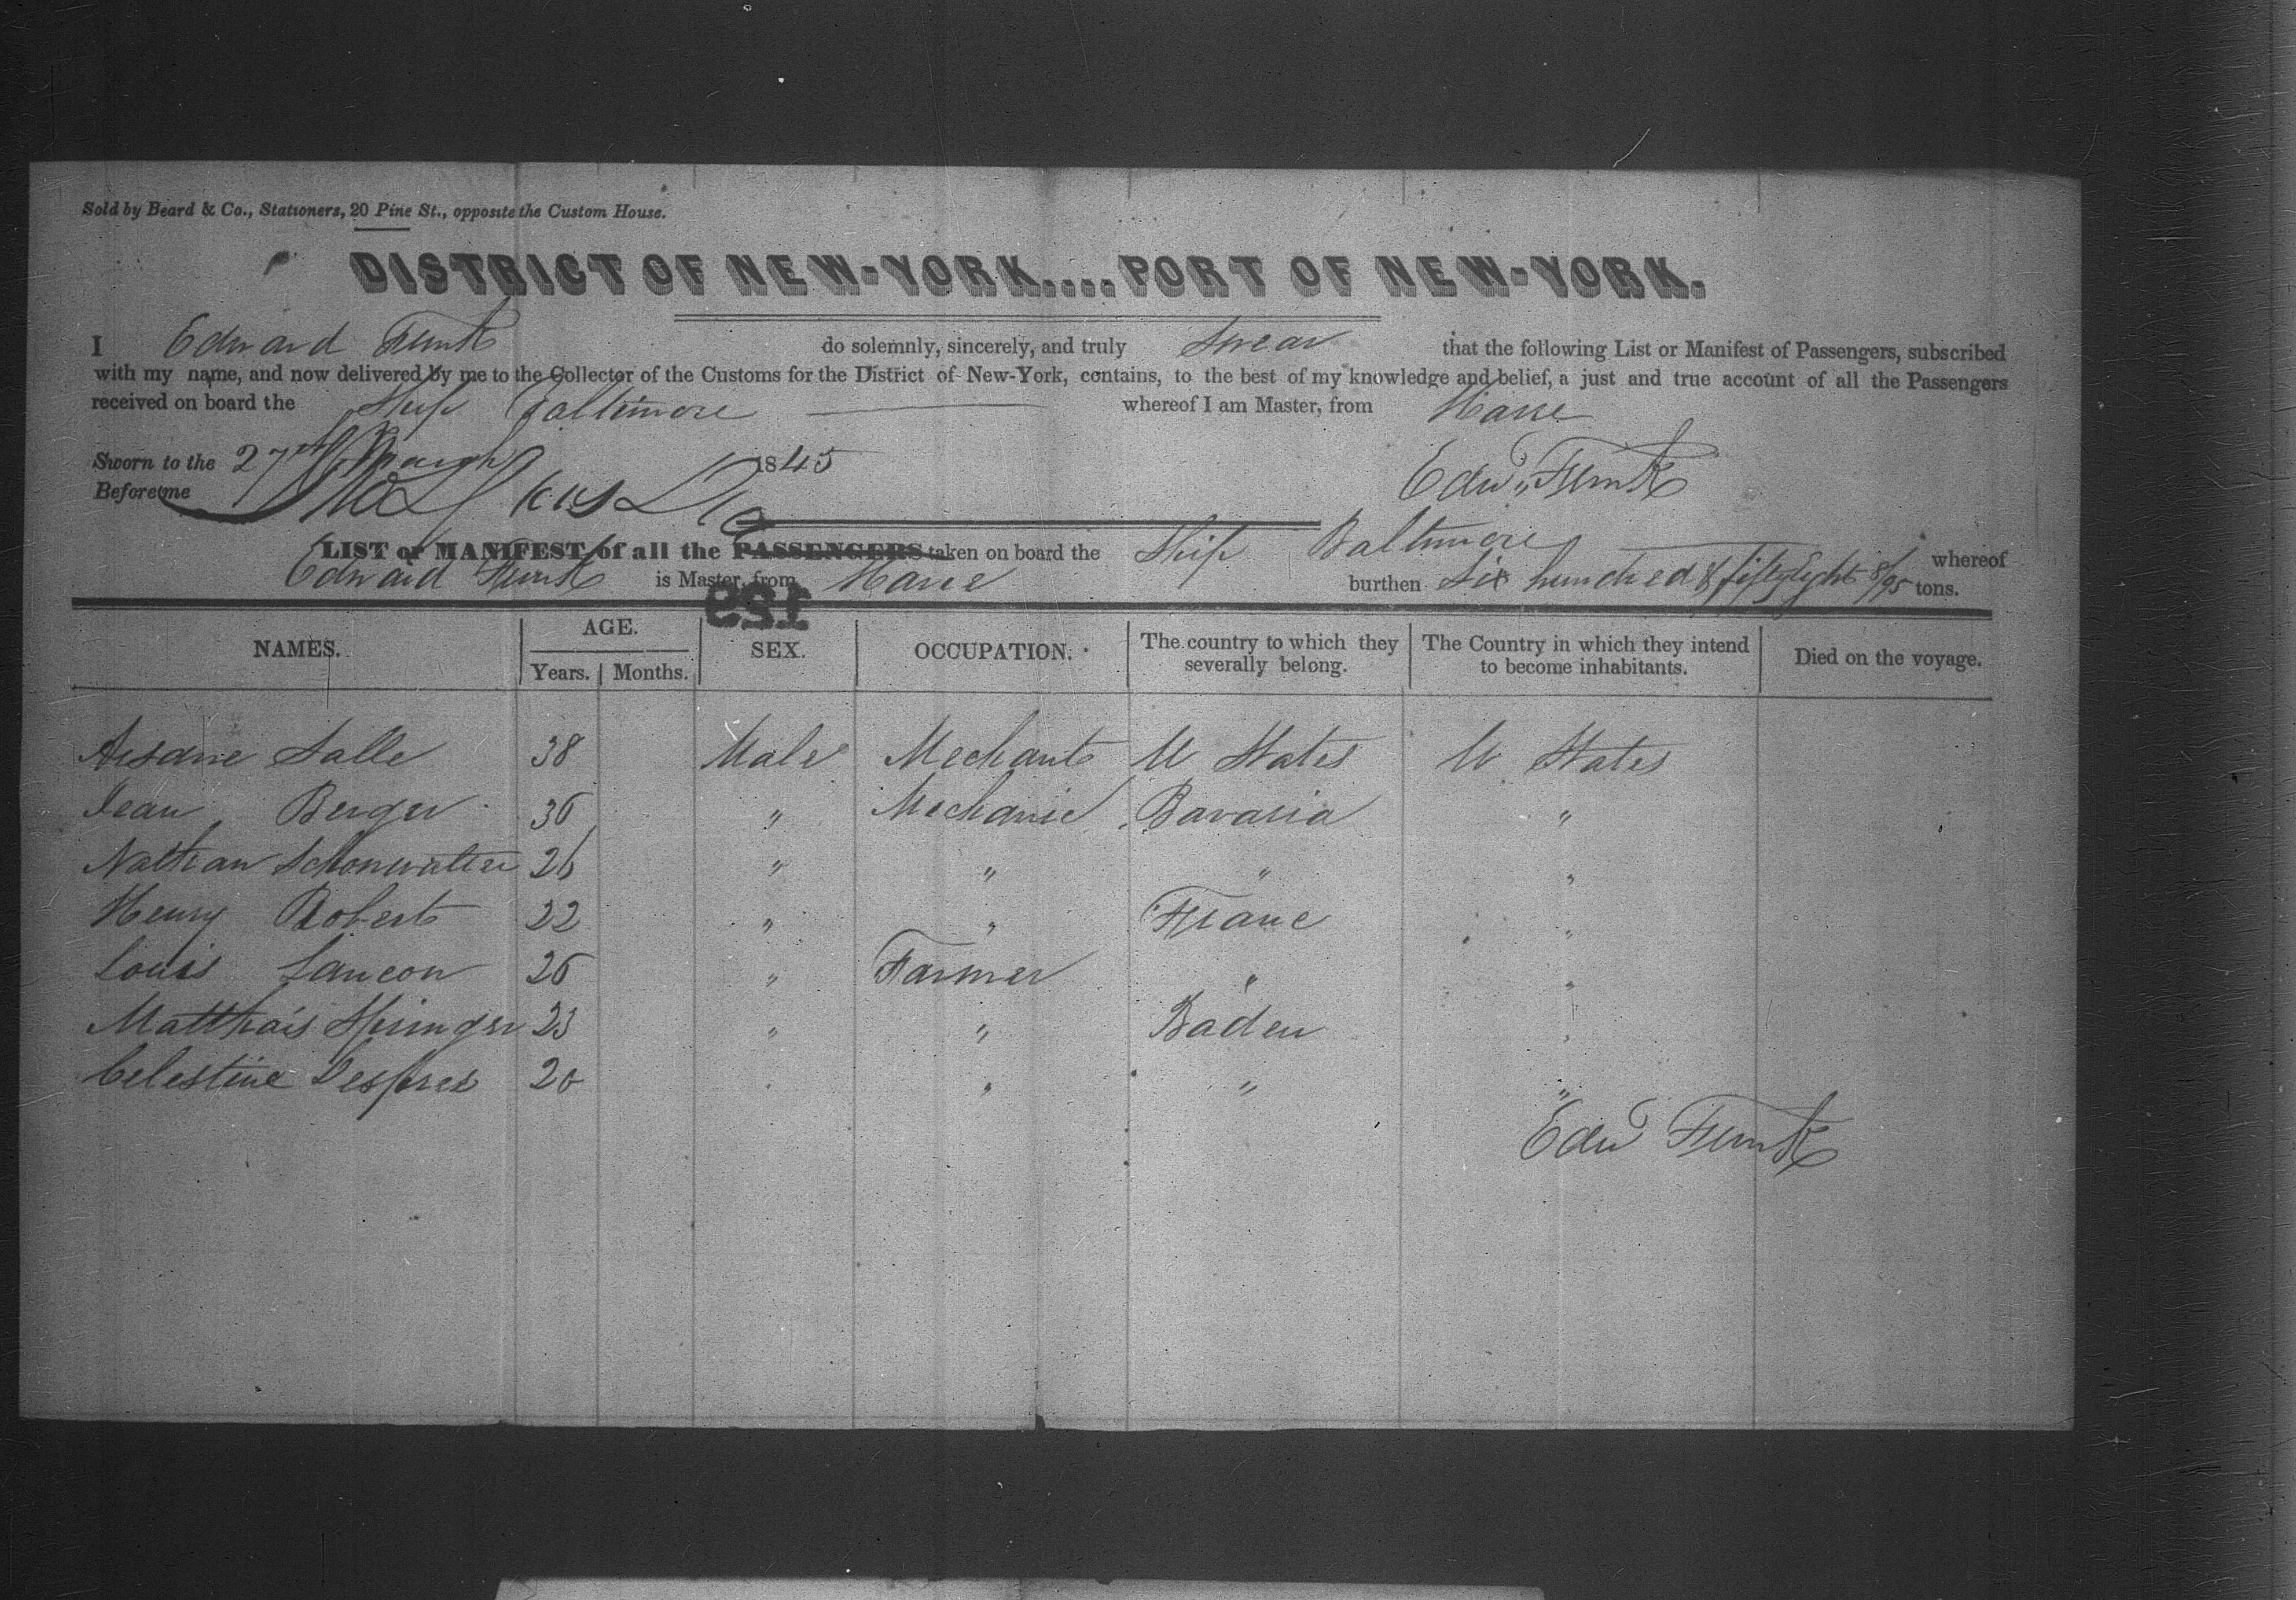 Sold by Beard & Co., Stationers, 20 Pine St., opposite the Custom House.
DISTRICT OF NEW-YORK....PORT OF NEW-YORK.
I Edward Funk do solemnly, sincerely, and truly Swear that the following List or Manifest of Passengers, subscribed
with my name, and now delivered by me to the Collector of the Customs for the District of New-York, contains, to the best of my knowledge and belief, a just and true account of all the Passengers
received on board the Ship Baltimore whereof I am Master, from Havre
Sworn to the 27th March 1845
Before me
Edw. Funk
LIST or MANIFEST of all the PASSENGERS taken on board the Ship Baltimore whereof
Edward Funk is Master, from Havre burthen Six hundred & fifty Eight 8/95 tons.
159
NAMES. AGE. SEX. OCCUPATION. The country to which they severally belong. The Country in which they intend to become inhabitants. Died on the voyage.
Years. Months.
Salle 38 Male Mechant U States U States
Jean Berger 36 " Mechanic Bavaria "
Nathan 26 " " " "
Henry Robert 22 " " Franc "
Louis Lancon 26 " Farmer " "
Matthais Springer 23 " " Baden "
Celestine Despres 20 " " " "
Edw Funk